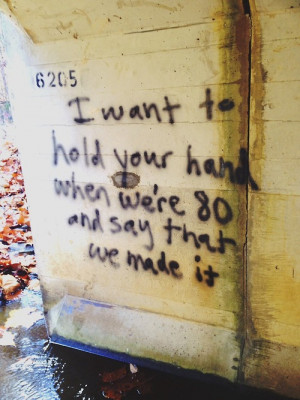 6205
I want to
hold your hand
when we're 80
and say that
we made it